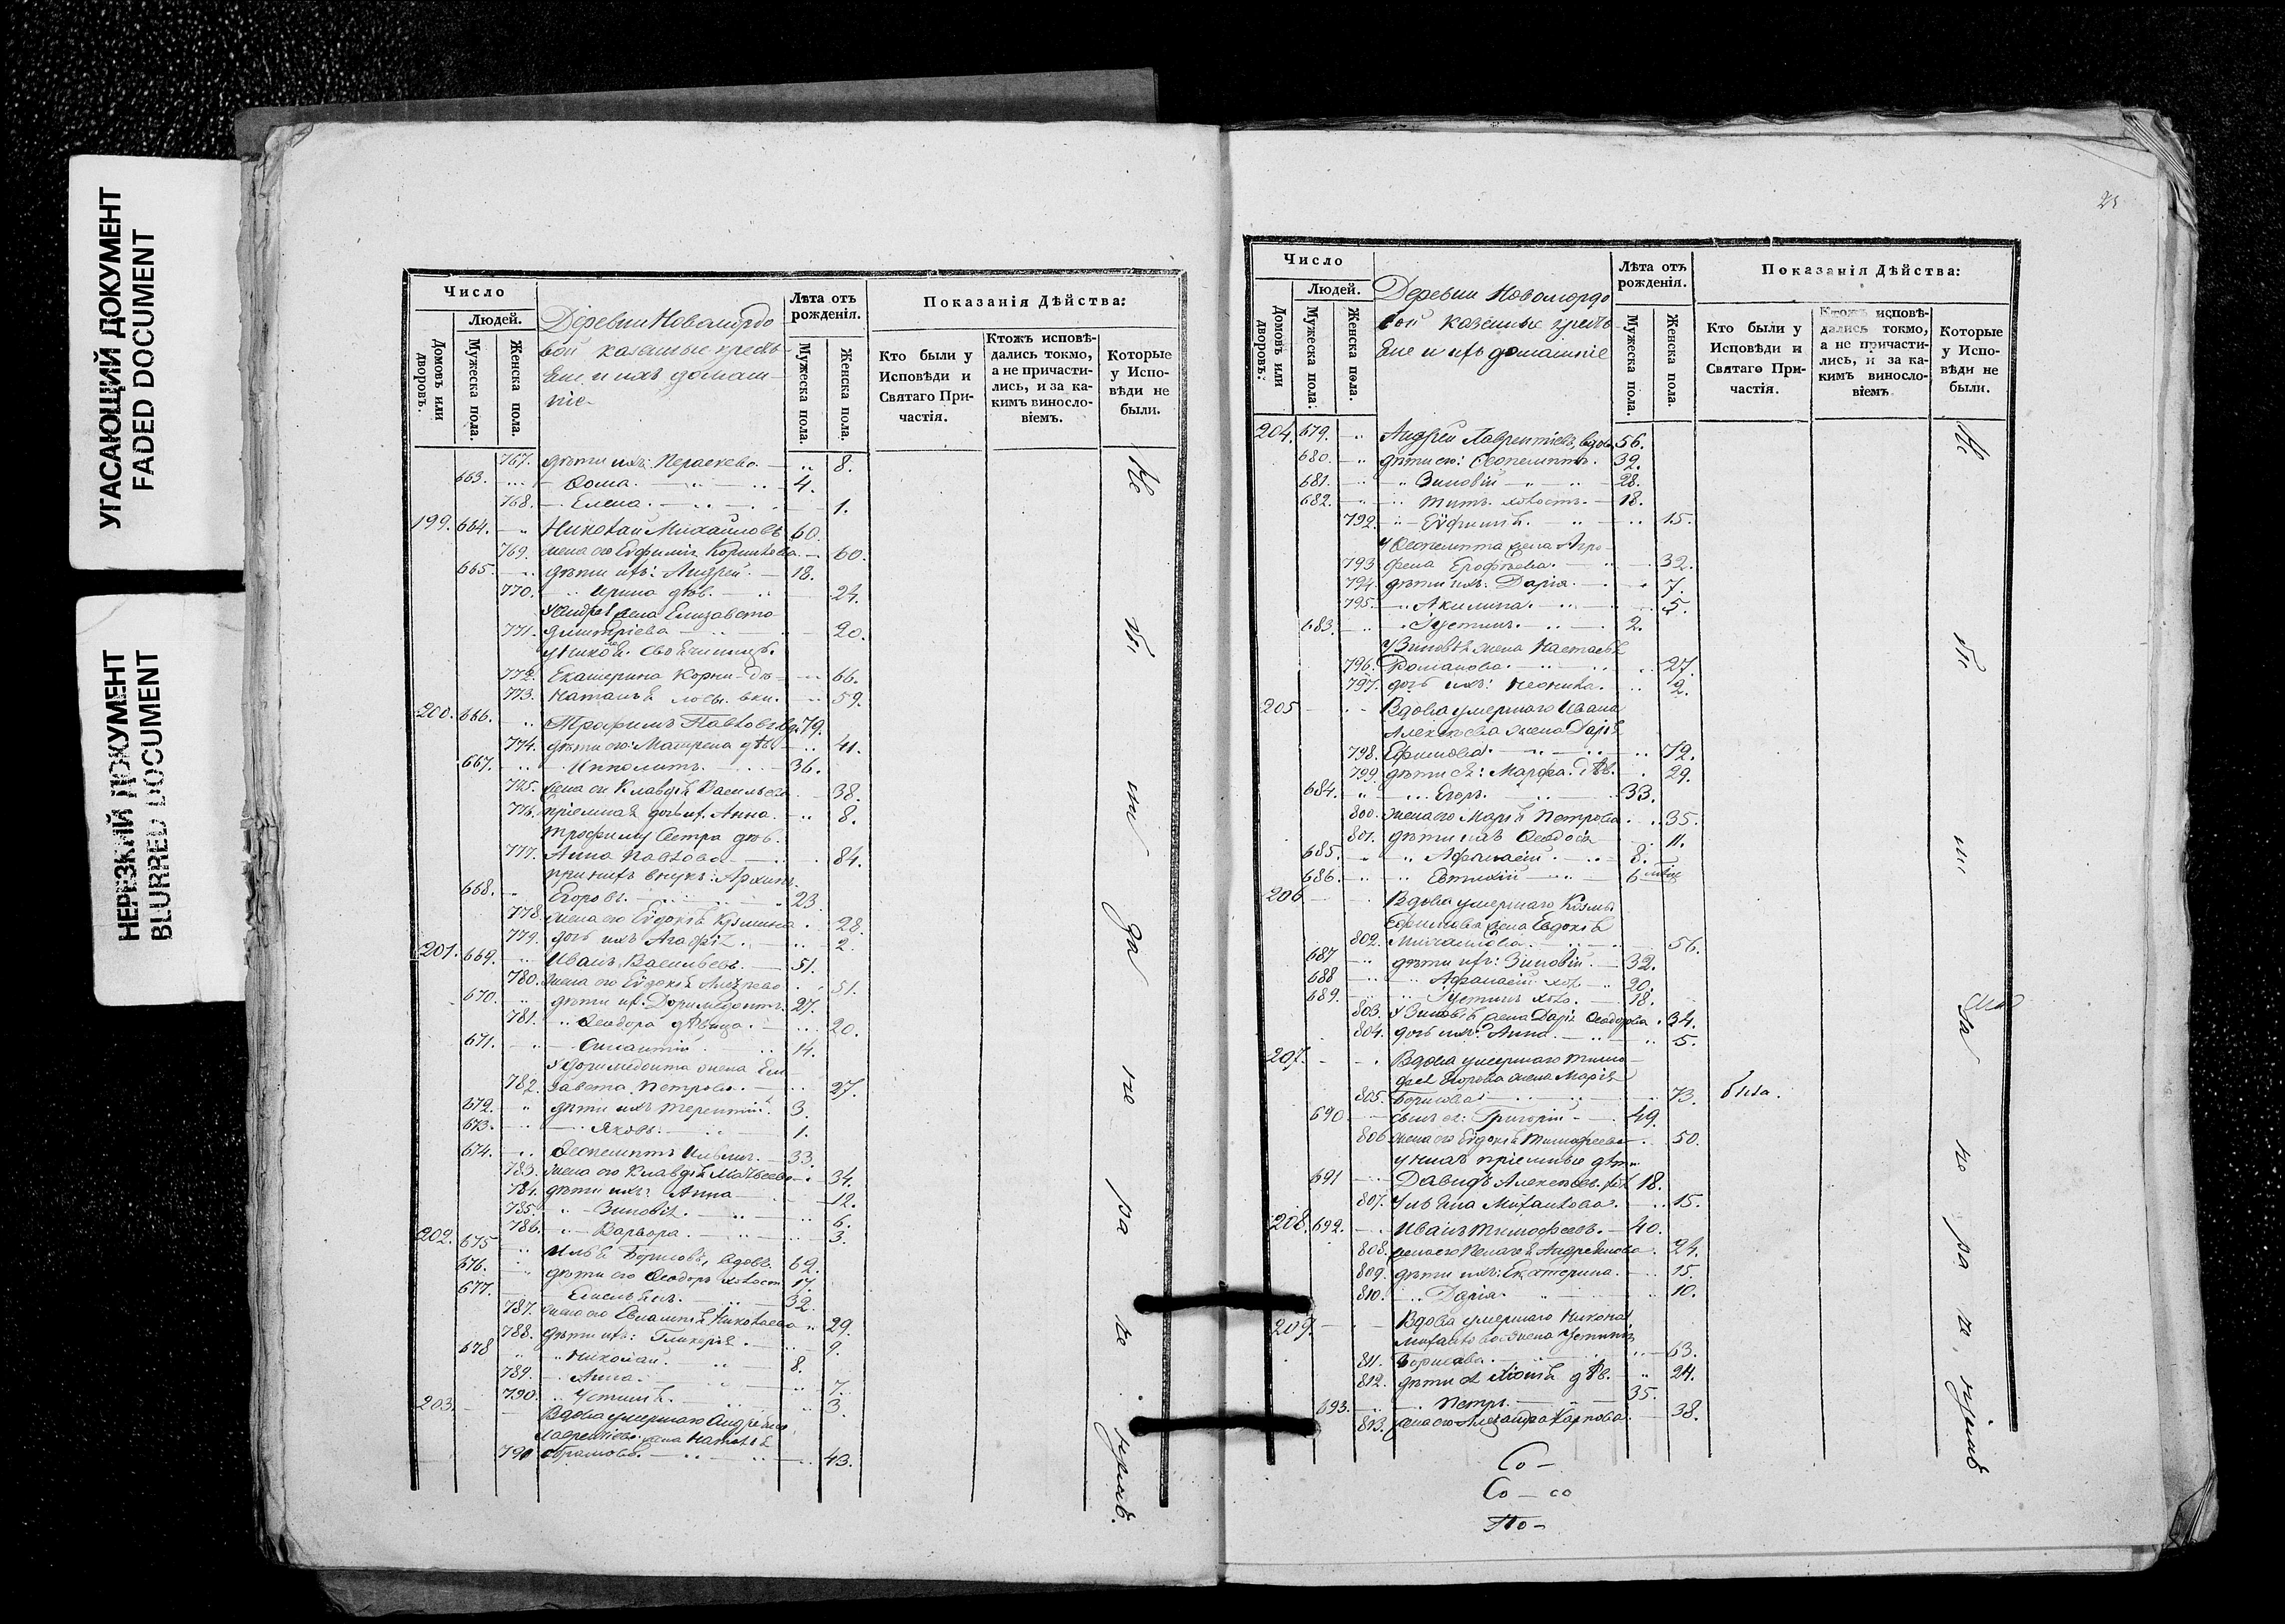 УГАСАЮЩИЙ ДОКУМЕНТ
FADED DOCUMENT
НЕРЕЗКИЙ ДОКУМЕНТ
BLURRED DOCUMENT
Число
Людей.
Домовъ или дворовъ.
Мужеска пола.
Женска пола.
Деревни Новомордо
вой казенные крестья
не и ихъ домаш
ніе
Лѣта отъ рожденія.
Мужеска пола.
Женска пола.
Показанія Дѣйства:
Кто были у Исповѣди и Святаго При-
частія.
Ктожъ исповѣ-
дались токмо, а не причасти-
лись, и за ка-
кимъ винослo-
віемъ.
Которые у Испо-
вѣди не были.
767. дѣти ихъ: Параскева 8.
663. Ѳома. 4.
768. Елена. 1.
199. 664. Николай Михайловъ 60.
769. жена его Евфимія Корнилова 60.
665. дѣти ихъ: Андрей. 18.
770. Ирина дѣв. 24.
у Андрея жена Елизавета
771. Димитріева 20.
772. Екатерина Корни 66.
773. Наталья 59.
200. 666. Трофимъ Павловъ вд. 79.
774. дѣти его: Матрена дѣв 41.
667. Ипполитъ. 36.
775. жена его Клавдія Васильева 38.
776. пріемная дочь их. Анна. 8.
Трофиму сестра дѣв.
777. Анна Павлова 84.
при нихъ внукъ: Архипъ
668. Егоровъ. 23.
778. жена его Евдокія Кузмина 28.
779. дочь ихъ Агафія 2.
201. 669. Иванъ Васильевъ. 51.
780. жена его Евдокія 51.
670. дѣти их. Доримедонтъ. 27.
781. Ѳеодора дѣвица. 20.
671. 14.
у Доримедонта жена Ели
782. завета Петрова. 27.
672. дѣти ихъ Терентій. 3.
673. Яковъ. 1.
674. Ѳеопемптъ Ильинъ. 33.
783. жена его Клавдія Матвеева 34.
784. дѣти ихъ: Анна 12.
785. Зиновія. 6.
786. Варвара. 3.
202. 675 Илья Борисовъ, вдовъ. 62.
676. дѣти его Ѳеодоръ холост 17.
677. Емельянъ. 32.
787. жена его Евлампія Николаева 29.
788. дѣти ихъ: Гликерія. 9.
678 Николай. 8.
789. Анна. 7.
790. Устинья. 3.
203. Вдова умершаго Андреяна
Лаврентіева жена Наталья
790 Абрамова. 43.
Не бы ли за не ра де ніемъ.
Число
Людей.
Домовъ или дворовъ:
Мужеска пола:
Женска пола.
Деревни Новомордо
вой казенные крестья
не и ихъ домашніе
Лѣта отъ рожденія.
Мужеска пола.
Женска пола.
Показанія Дѣйства:
Кто были у Исповѣди и Святаго При-
частія.
Ктожъ исповѣ-
дались токмо, а не причасти-
лись, и за ка-
кимъ винослo-
віемъ.
Которые у Испо-
вѣди не были.
204. 679. Андрей Лаврентіевъ, вдовъ 56.
680. дѣти его: Ѳеопемптъ. 32.
681. Зиновій 28.
682. Титъ холостъ. 18.
792. Евфимія. 15.
у Ѳеопемпта жена Агро
793 фена Ерофѣева. 32.
794. дѣти ихъ: Дарія. 7.
795. Акилина. 5.
683. Густинъ. 2.
у Зиновья жена Настасья
796. Романова. 27.
797. дочь ихъ: Неонила. 2.
205 Вдова умершаго Ивана
Алексѣева жена Дарія
798. Ефимова 72.
799. дѣти ея: Марфа дѣв. 29.
684. Егоръ. 33.
800. жена его Марія Петрова 35.
801. дѣти ихъ Ѳеодосія 11.
685. Афанасій. 8.
686. Евтихій 6
206 Вдова умершаго Козмы
Ефимова жена Евдокія
802. Михайлова. 56.
687. дѣти ихъ: Зиновій. 32.
688 Афанасій хол 20.
689. Густинъ холо. 18.
803. у Зиновья жена Дарія Ѳеодорова 34.
804. дочь ихъ: Анна. 5.
207. Вдова умершаго Тимо
фея Егорова жена Марія
805. Борисова 73. была.
690 сынъ ея: Григорій 49.
806 жена его Евдокія Тимофеева 50.
у нихъ пріемные дѣти
691 Давидъ Алексѣев. хол. 18.
807. Ульяна Михайлова. 15.
208. 692. Иванъ Тимофеевъ. 40.
808. жена его Пелагея Андреянова 24.
809. дѣти ихъ: Екатерина. 15.
810. Дарія. 10.
209. Вдова умершаго Никона
Михайлова жена Устинья
811. Борисова. 63.
812. дѣти ея дѣв. 24.
693. Петръ. 35.
813. жена его Александра Карпова. 38.
Не бы ли за не ра де ніемъ
Со-
Со-со
По-